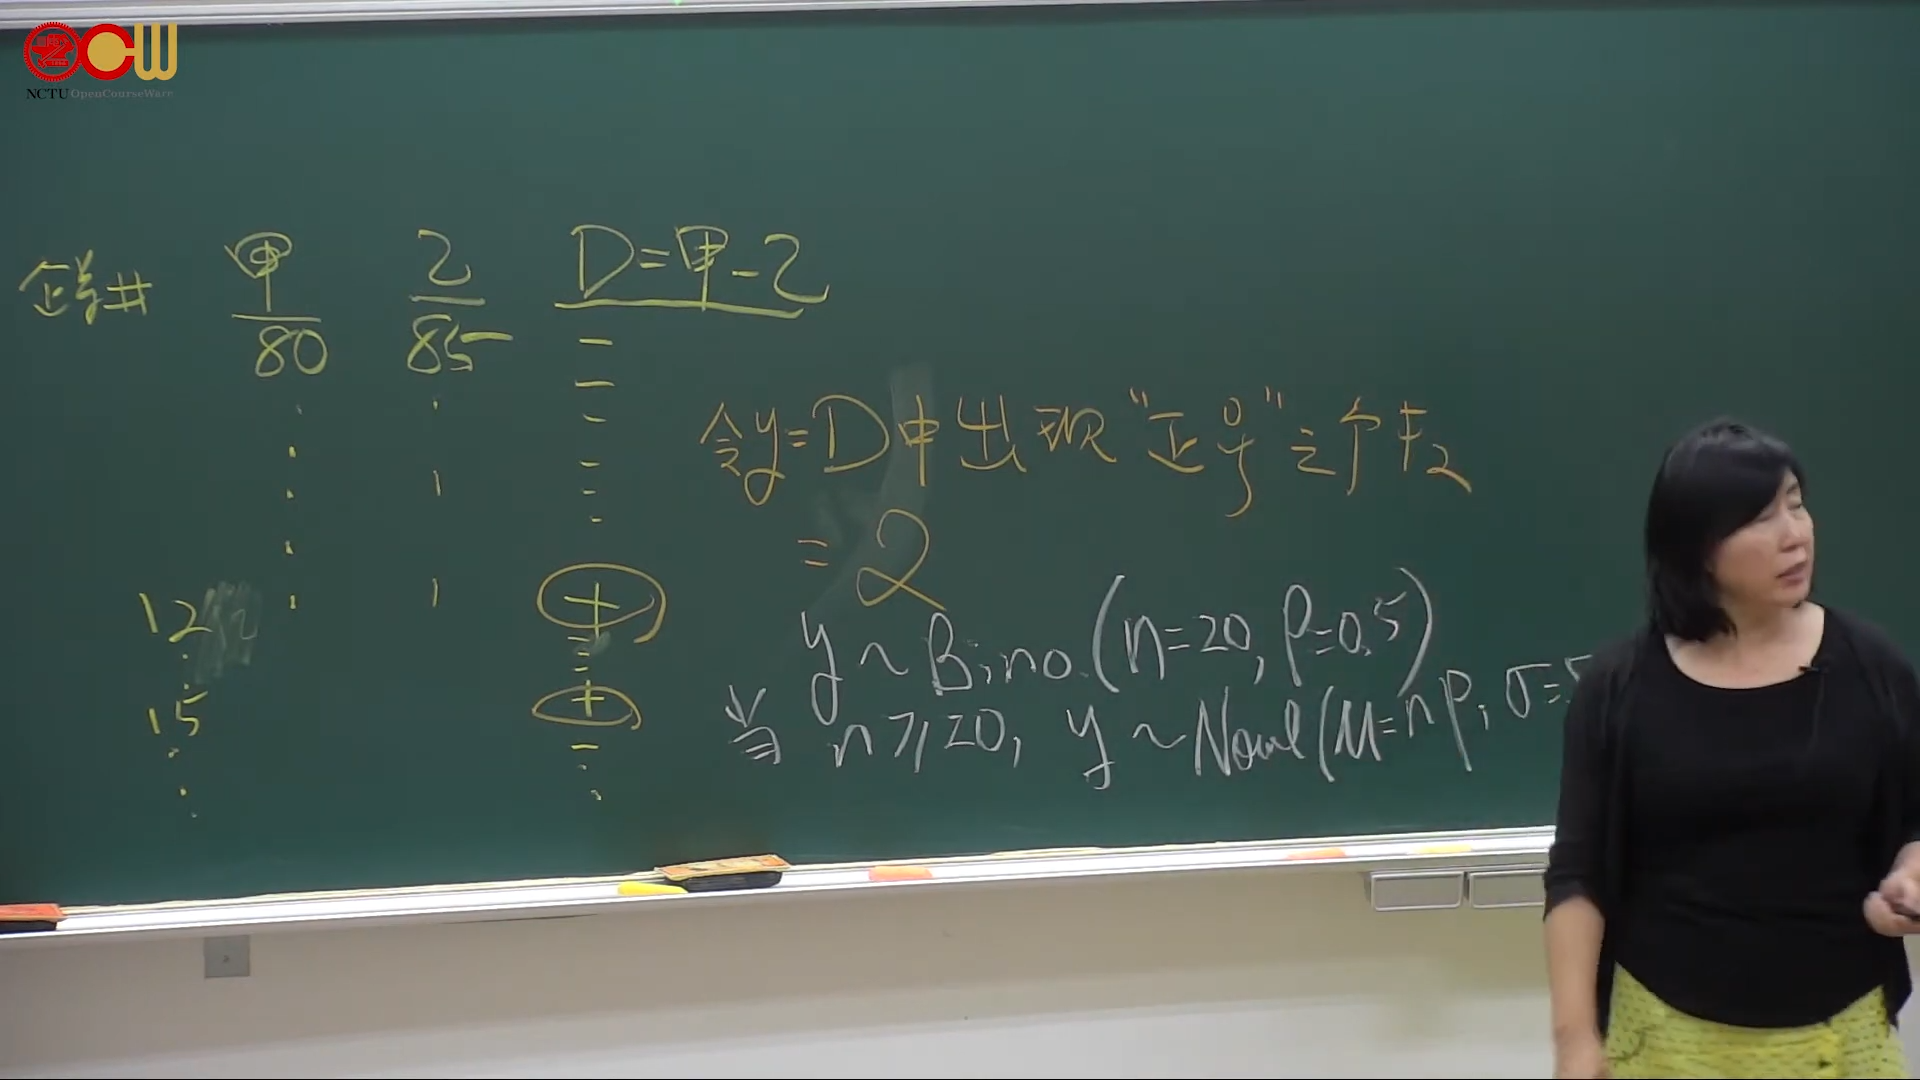 NCTU OpenCourseWare
甲 乙 D=甲-乙
80 85 -
-
-
-
-
-
12 +
-
-
15 +
-
令y=D中出現"正号"之个数
=2
y~Bino.(n=20, P=0.5)
當 n≥20, y~Normal(μ=np, σ=